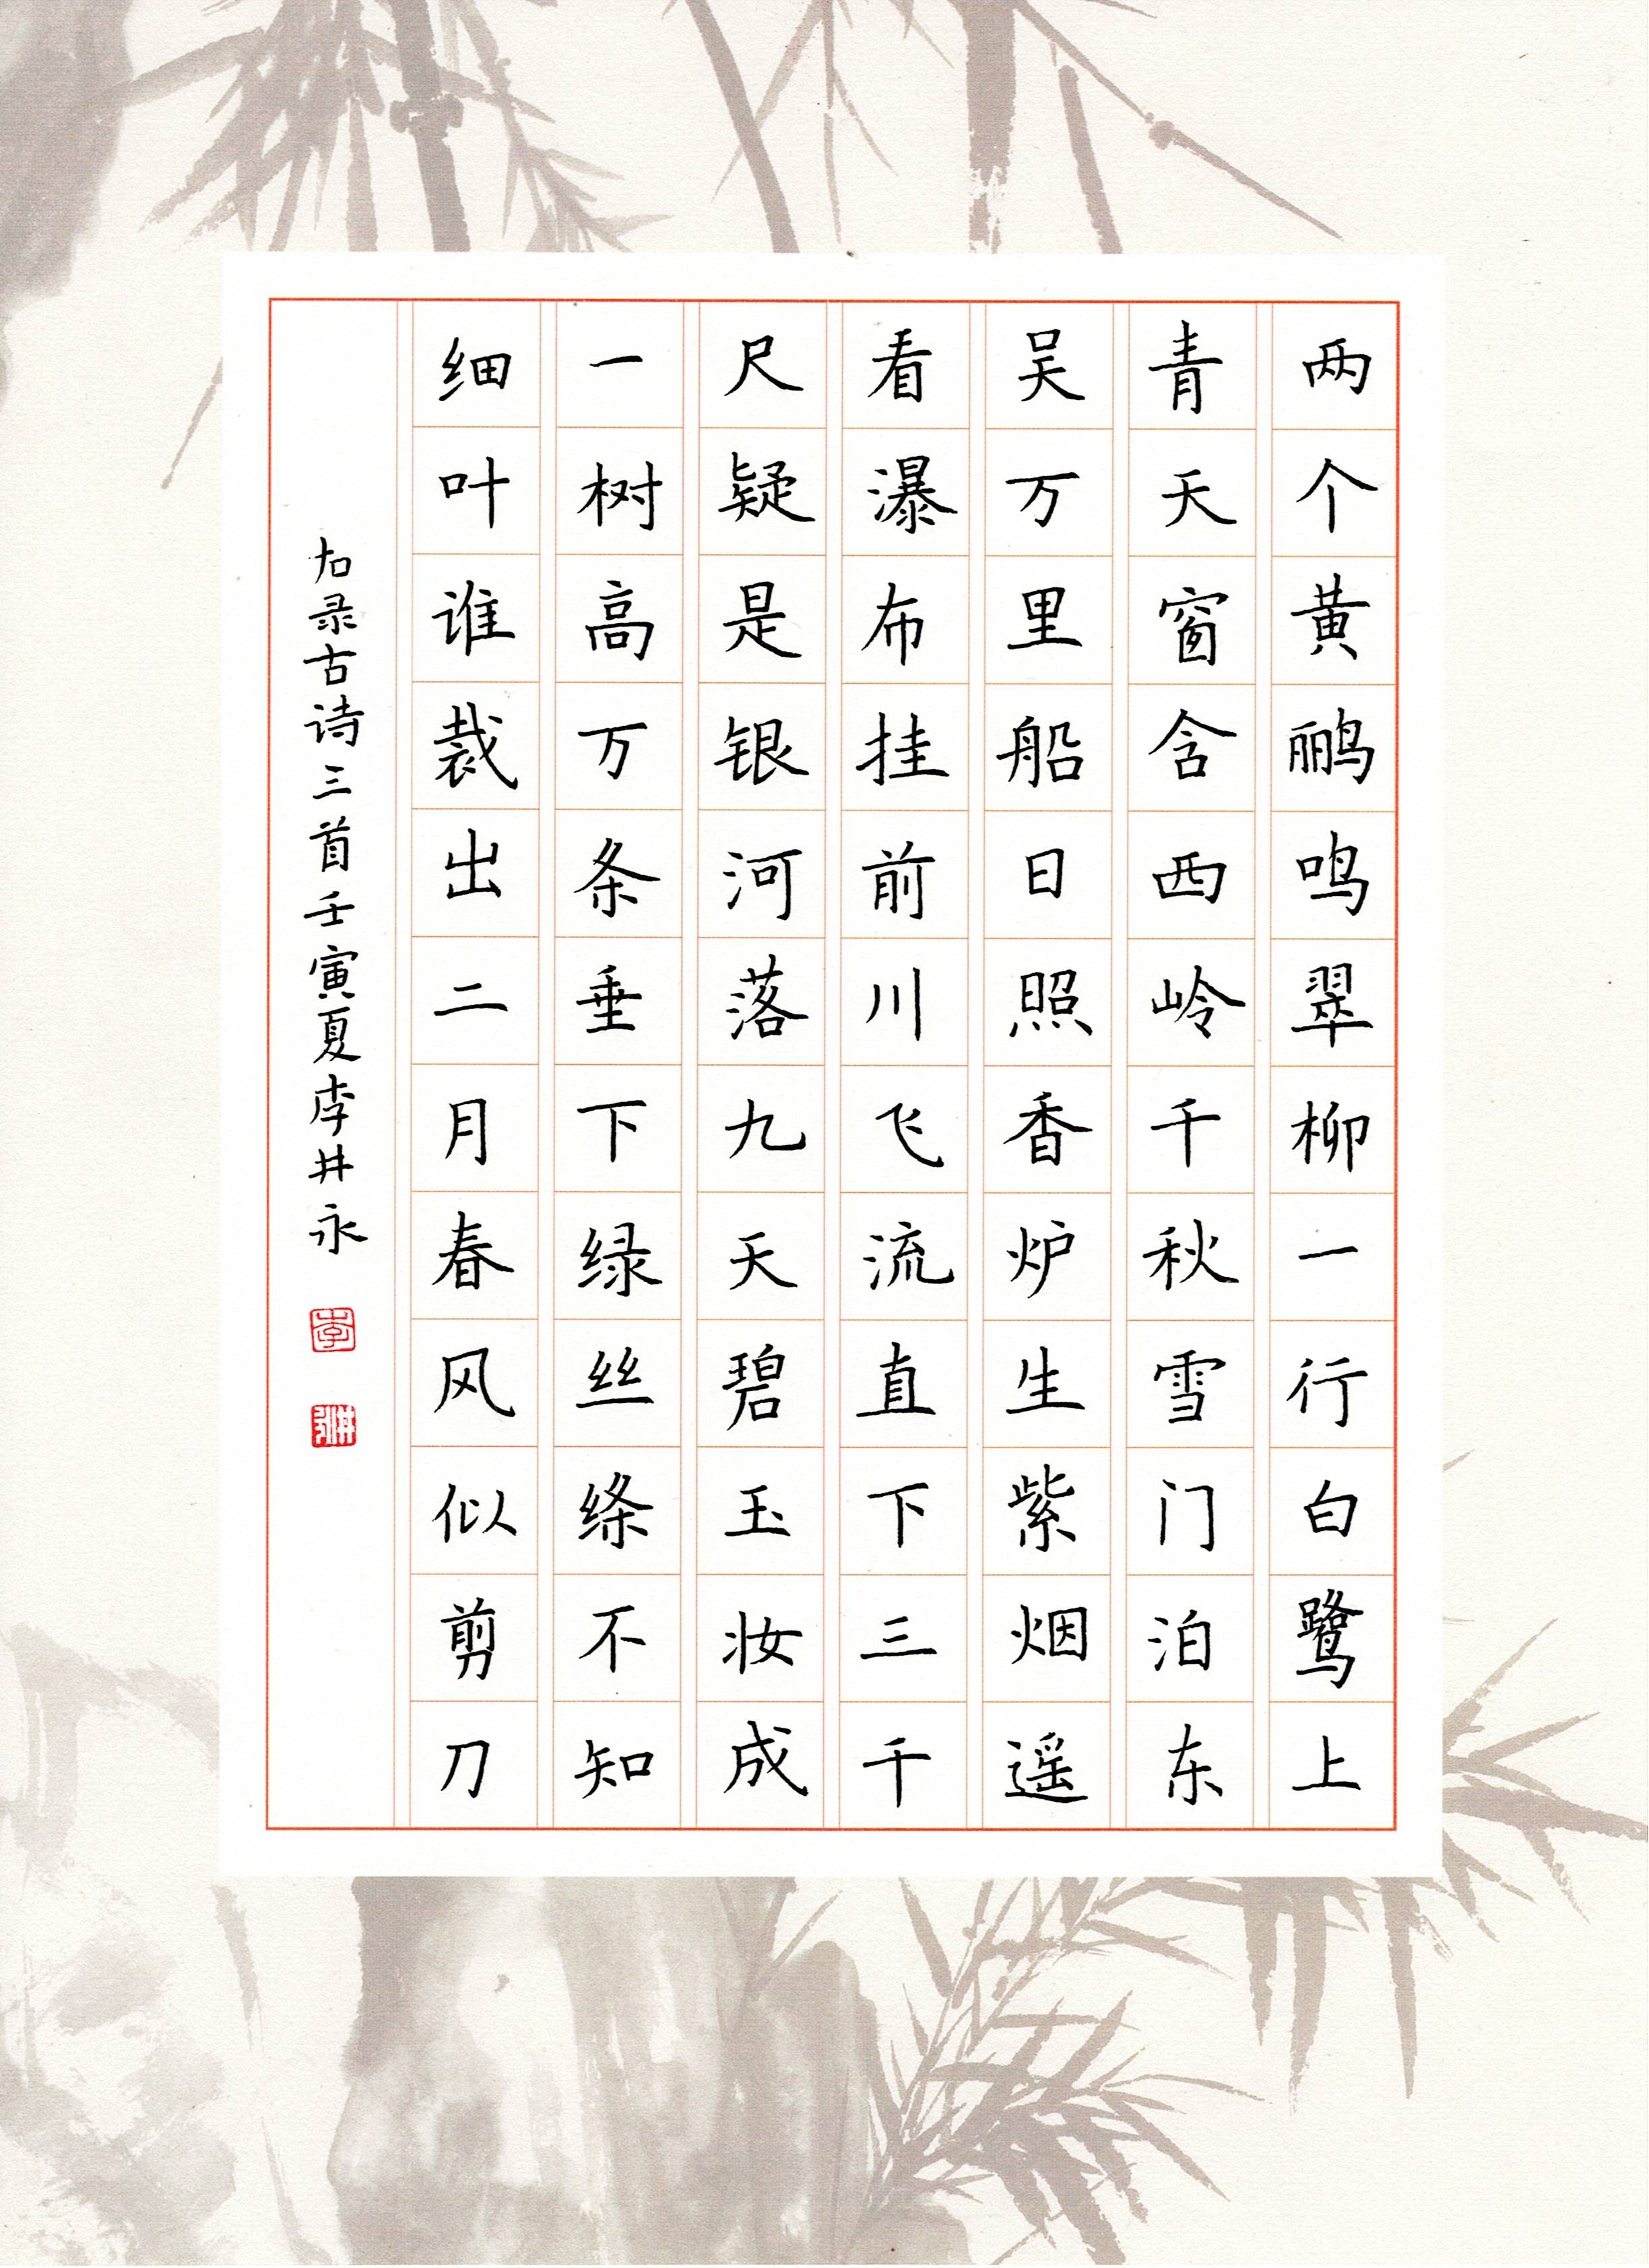 两个黄鹂鸣翠柳一行白鹭上
青天窗含西岭千秋雪门泊东
吴万里船日照香炉生紫烟遥
看瀑布挂前川飞流直下三千
尺疑是银河落九天碧玉妆成
一树高万条垂下绿丝绦不知
细叶谁裁出二月春风似剪刀
右录古诗三首壬寅夏李井永
李
井永